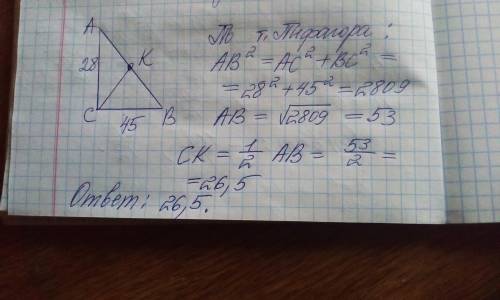 A
28
K
C
45
B
По т. Пифагора:
AB² = AC² + BC² =
= 28² + 45² = 2809
AB = √2809 = 53
CK = 1/2 AB = 53/2 =
= 26,5
Ответ: 26,5.